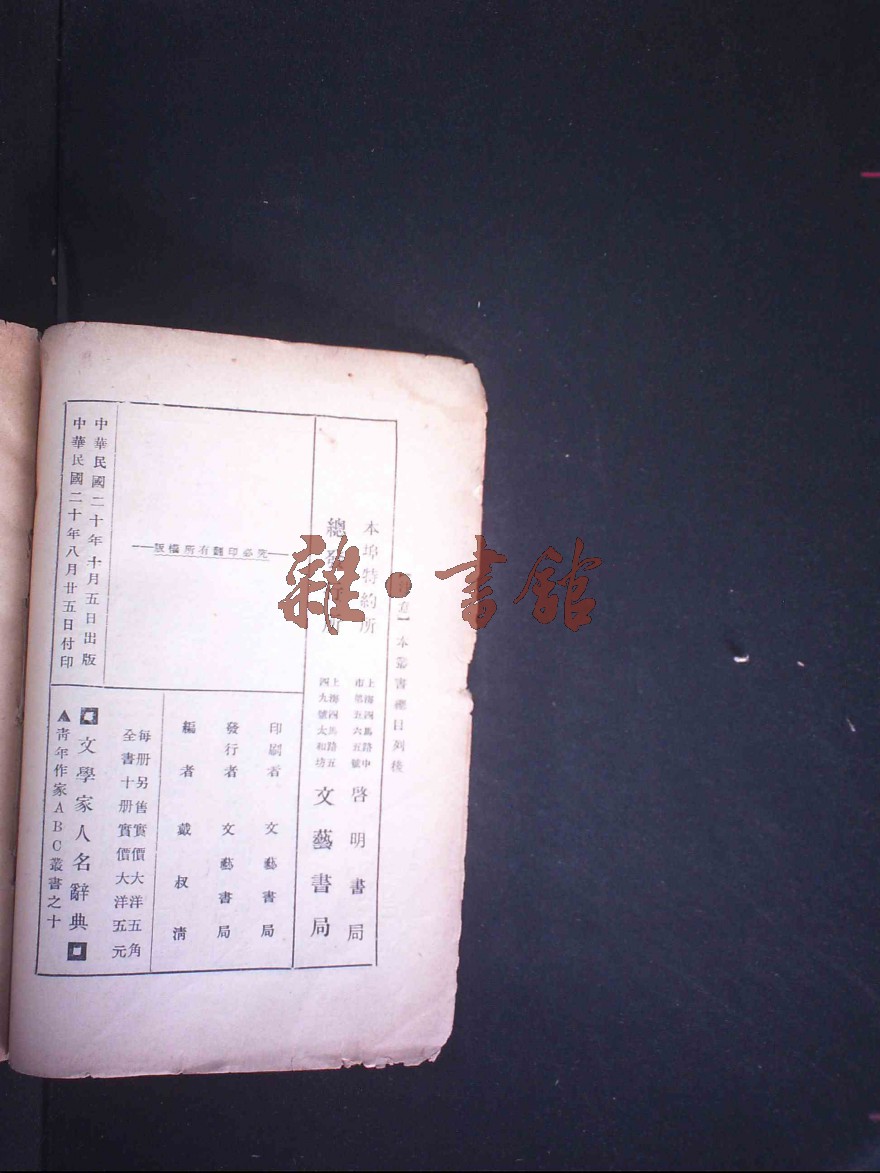 中華民國二十年八月廿五日付印
中華民國二十年十月五日出版
版權所有翻印必究
▲青年作家ABC叢書之十
文學家人名辭典
全書十册實價大洋五元
每册另售實價大洋五角
編者 戴叔清
發行者 文藝書局
印刷者 文藝書局
總發行所
上海四馬路五
四九號太和坊
文藝書局
本埠特約所
上海四馬路中
市第五六五號
啓明書局
本叢書總目列後
雜·書館